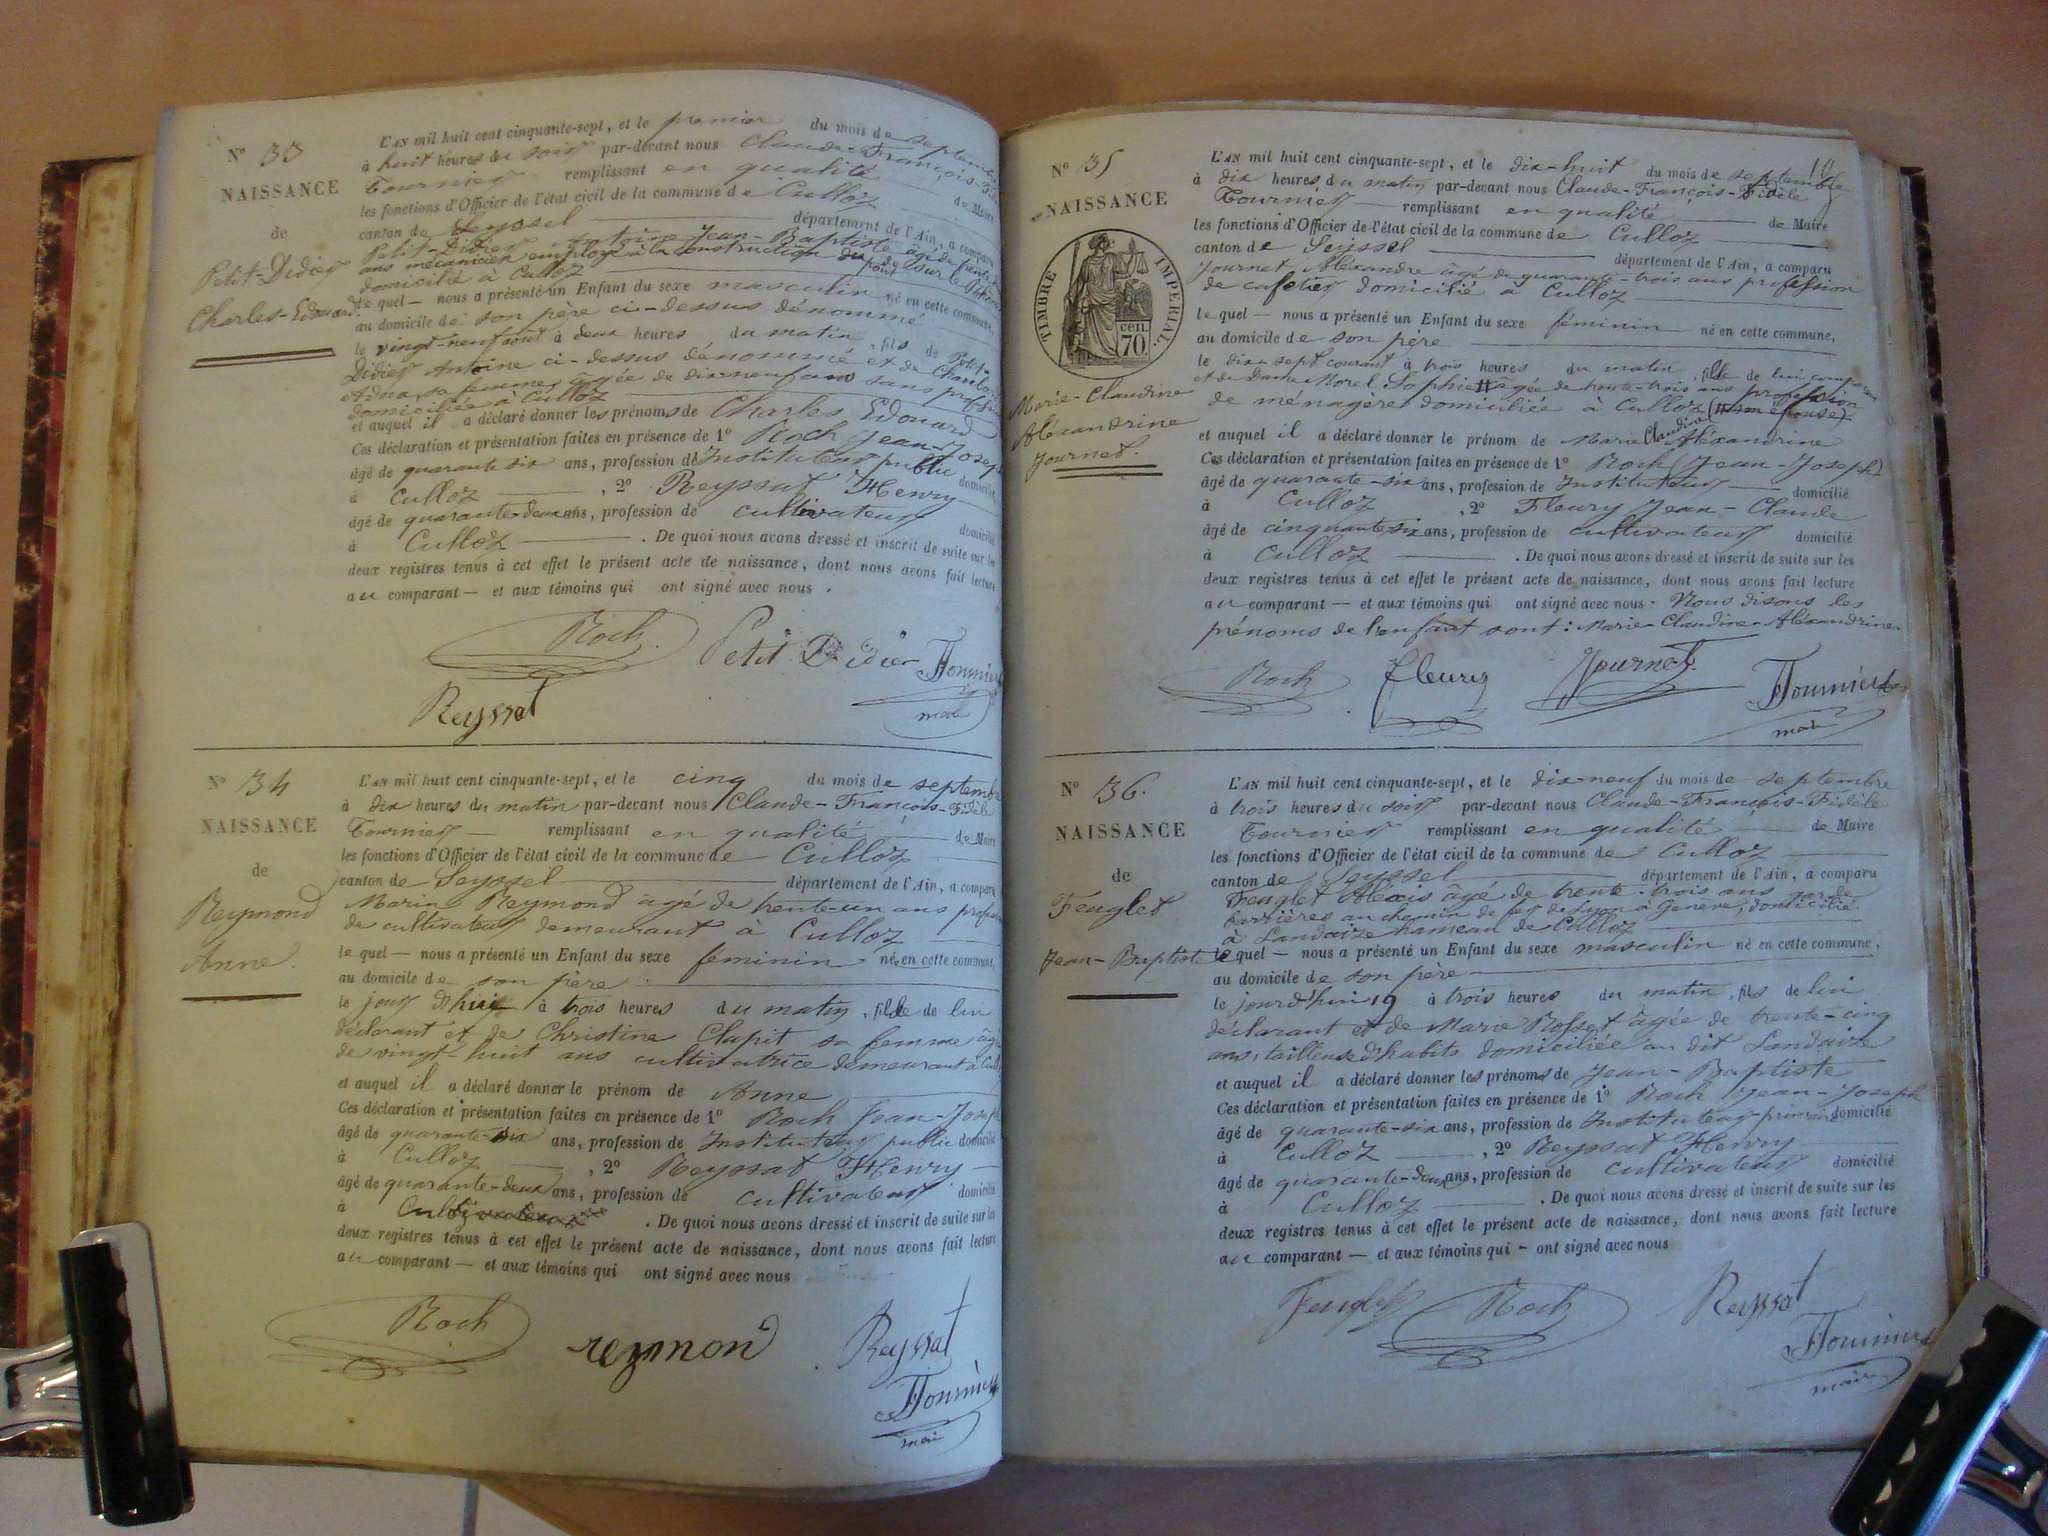 N° 33
NAISSANCE
de
Petit-Didier
Charles-Edouard.
L'AN mil huit cent cinquante-sept, et le premier du mois de septembre
à huit heures du soir par-devant nous Claude-François-
Tournier remplissant en qualité de Maire
les fonctions d'Officier de l'état civil de la commune de Culloz
canton de Seyssel département de l'Ain, a comparu
Petit-Didier Antoine Jean-Baptiste âgé de trente
ans mécanicien employé à la construction du pont sur le
domicilié à Culloz
le quel — nous a présenté un Enfant du sexe masculin né en cette commune,
au domicile de son père ci-dessus dénommé
le vingt-neuf août à deux heures du matin, fils de Petit-
Didier Antoine ci-dessus dénommé et de
sa femme âgée de dix-neuf ans sans
domiciliée à Culloz
et auquel il a déclaré donner les prénoms de Charles Edouard
Ces déclaration et présentation faites en présence de 1° Roch Jean-Joseph
âgé de quarante six ans, profession de Instituteur public domicilié
à Culloz , 2° Reyssat Henry
âgé de quarante-deux ans, profession de cultivateur domicilié
à Culloz . De quoi nous avons dressé et inscrit de suite sur les
deux registres tenus à cet effet le présent acte de naissance, dont nous avons fait lecture
au comparant — et aux témoins qui ont signé avec nous.
Roch Petit Didier Tournier
Reyssat maire
N° 34
NAISSANCE
de
Reymond
Anne.
L'AN mil huit cent cinquante-sept, et le cinq du mois de septembre
à dix heures du matin par-devant nous Claude-François-Fidèle
Tournier — remplissant en qualité de Maire
les fonctions d'Officier de l'état civil de la commune de Culloz
canton de Seyssel département de l'Ain, a comparu
Marin Reymond âgé de trente-un ans profession
de cultivateur demeurant à Culloz
le quel — nous a présenté un Enfant du sexe féminin né en cette commune,
au domicile de son père
le jour d'hui à trois heures du matin, fille de lui
déclarant et de Christine Clapit sa femme âgée
de vingt-huit ans cultivatrice demeurant à Culloz
et auquel il a déclaré donner le prénom de Anne
Ces déclaration et présentation faites en présence de 1° Roch Jean-Joseph
âgé de quarante-six ans, profession de Instituteur public domicilié
à Culloz , 2° Reyssat Henry —
âgé de quarante-deux ans, profession de cultivateur domicilié
à Culloz . De quoi nous avons dressé et inscrit de suite sur les
deux registres tenus à cet effet le présent acte de naissance, dont nous avons fait lecture
au comparant — et aux témoins qui ont signé avec nous
Roch reymond Reyssat
Tournier
maire
N° 35
NAISSANCE
TIMBRE IMPERIAL.
70 cen.
Marie-Claudine
Aléxandrine
Journet.
L'AN mil huit cent cinquante-sept, et le dix-huit du mois de septembre
à dix heures du matin par-devant nous Claude-François-Fidèle
Tournier — remplissant en qualité de Maire
les fonctions d'Officier de l'état civil de la commune de Culloz
canton de Seyssel département de l'Ain, a comparu
Journet Aléxandre âgé de quarante-trois ans profession
de cafetier domicilié à Culloz
le quel — nous a présenté un Enfant du sexe féminin né en cette commune,
au domicile de son père
le dix-sept courant à trois heures du matin, fille de lui comparant
et de Dame Morel Sophie # âgée de trente-trois ans profession
de ménagère domiciliée à Culloz (# son épouse)
et auquel il a déclaré donner le prénom de Marie Claudine Aléxandrine
Ces déclaration et présentation faites en présence de 1° Roch (Jean-Joseph)
âgé de quarante-six ans, profession de Instituteur — domicilié
à Culloz , 2° Fleury Jean-Claude
âgé de cinquante six ans, profession de cultivateur domicilié
à Culloz . De quoi nous avons dressé et inscrit de suite sur les
deux registres tenus à cet effet le présent acte de naissance, dont nous avons fait lecture
au comparant — et aux témoins qui ont signé avec nous. Nous disons les
prénoms de l'enfant sont : Marie-Claudine-Aléxandrine
Roch fleury Journet Tournier
maire
N° 36.
NAISSANCE
de
Feuglet
Jean-Baptiste
L'AN mil huit cent cinquante-sept, et le dix-neuf du mois de septembre
à trois heures du soir par-devant nous Claude-François-Fidèle
Tournier remplissant en qualité de Maire
les fonctions d'Officier de l'état civil de la commune de Culloz
canton de Seyssel département de l'Ain, a comparu
Feuglet Aléxis âgé de trente-trois ans garde
barrières au chemin de fer de Lyon à Genève, domicilié
à Landaize hameau de Culloz
le quel — nous a présenté un Enfant du sexe masculin né en cette commune,
au domicile de son père
le jourd'hui 19 à trois heures du matin, fils de lui
déclarant et de Marie Rosset âgée de trente-cinq
ans, tailleuse d'habits domiciliée au dit Landaize
et auquel il a déclaré donner les prénoms de Jean-Baptiste
Ces déclaration et présentation faites en présence de 1° Roch Jean-Joseph
âgé de quarante-six ans, profession de Instituteur primaire domicilié
à Culloz , 2° Reyssat Henry
âgé de quarante-deux ans, profession de cultivateur domicilié
à Culloz . De quoi nous avons dressé et inscrit de suite sur les
deux registres tenus à cet effet le présent acte de naissance, dont nous avons fait lecture
au comparant — et aux témoins qui — ont signé avec nous
Feuglet Roch Reyssat
Tournier
maire